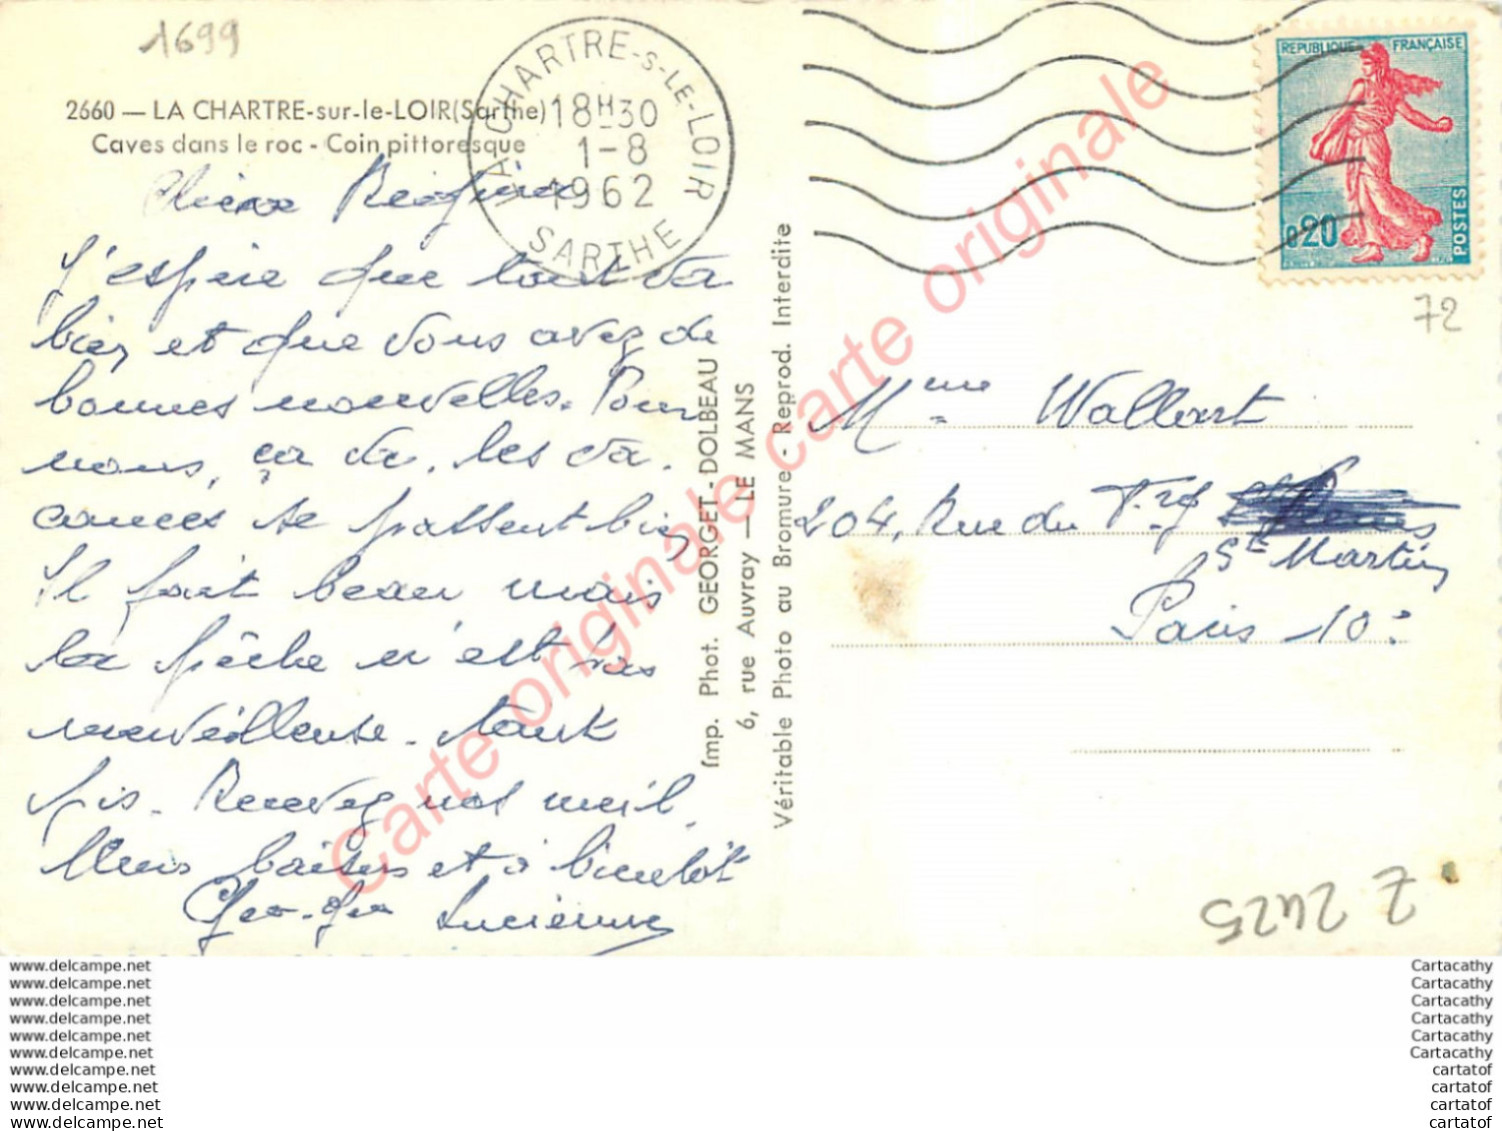 1699
2660 — LA CHARTRE-sur-le-LOIR (Sarthe)
Caves dans le roc - Coin pittoresque
LA CHARTRE-S-LE-LOIR
18H30
1-8
1962
SARTHE
REPUBLIQUE FRANÇAISE
0,20
POSTES
72
J'espère que tout va
bien et que vous avez de
bonnes nouvelles. Pour
nous, ça va. Les va-
cances se passent bien
Il fait beau mais
la pêche n'est pas
merveilleuse. Tant
pis. Recevez nos meil-
leurs baisers et à bientôt
Lucienne
Imp. Phot. GEORGET-DOLBEAU
6, rue Auvray — LE MANS
Véritable Photo au Bromure - Reprod. Interdite
Mme Wallart
204, Rue du Fg
St Martin
Paris 10e
Z 2425
Carte originale carte originale carte originale
www.delcampe.net
www.delcampe.net
www.delcampe.net
www.delcampe.net
www.delcampe.net
www.delcampe.net
www.delcampe.net
www.delcampe.net
www.delcampe.net
www.delcampe.net
Cartacathy
Cartacathy
Cartacathy
Cartacathy
Cartacathy
Cartacathy
cartatof
cartatof
cartatof
cartatof